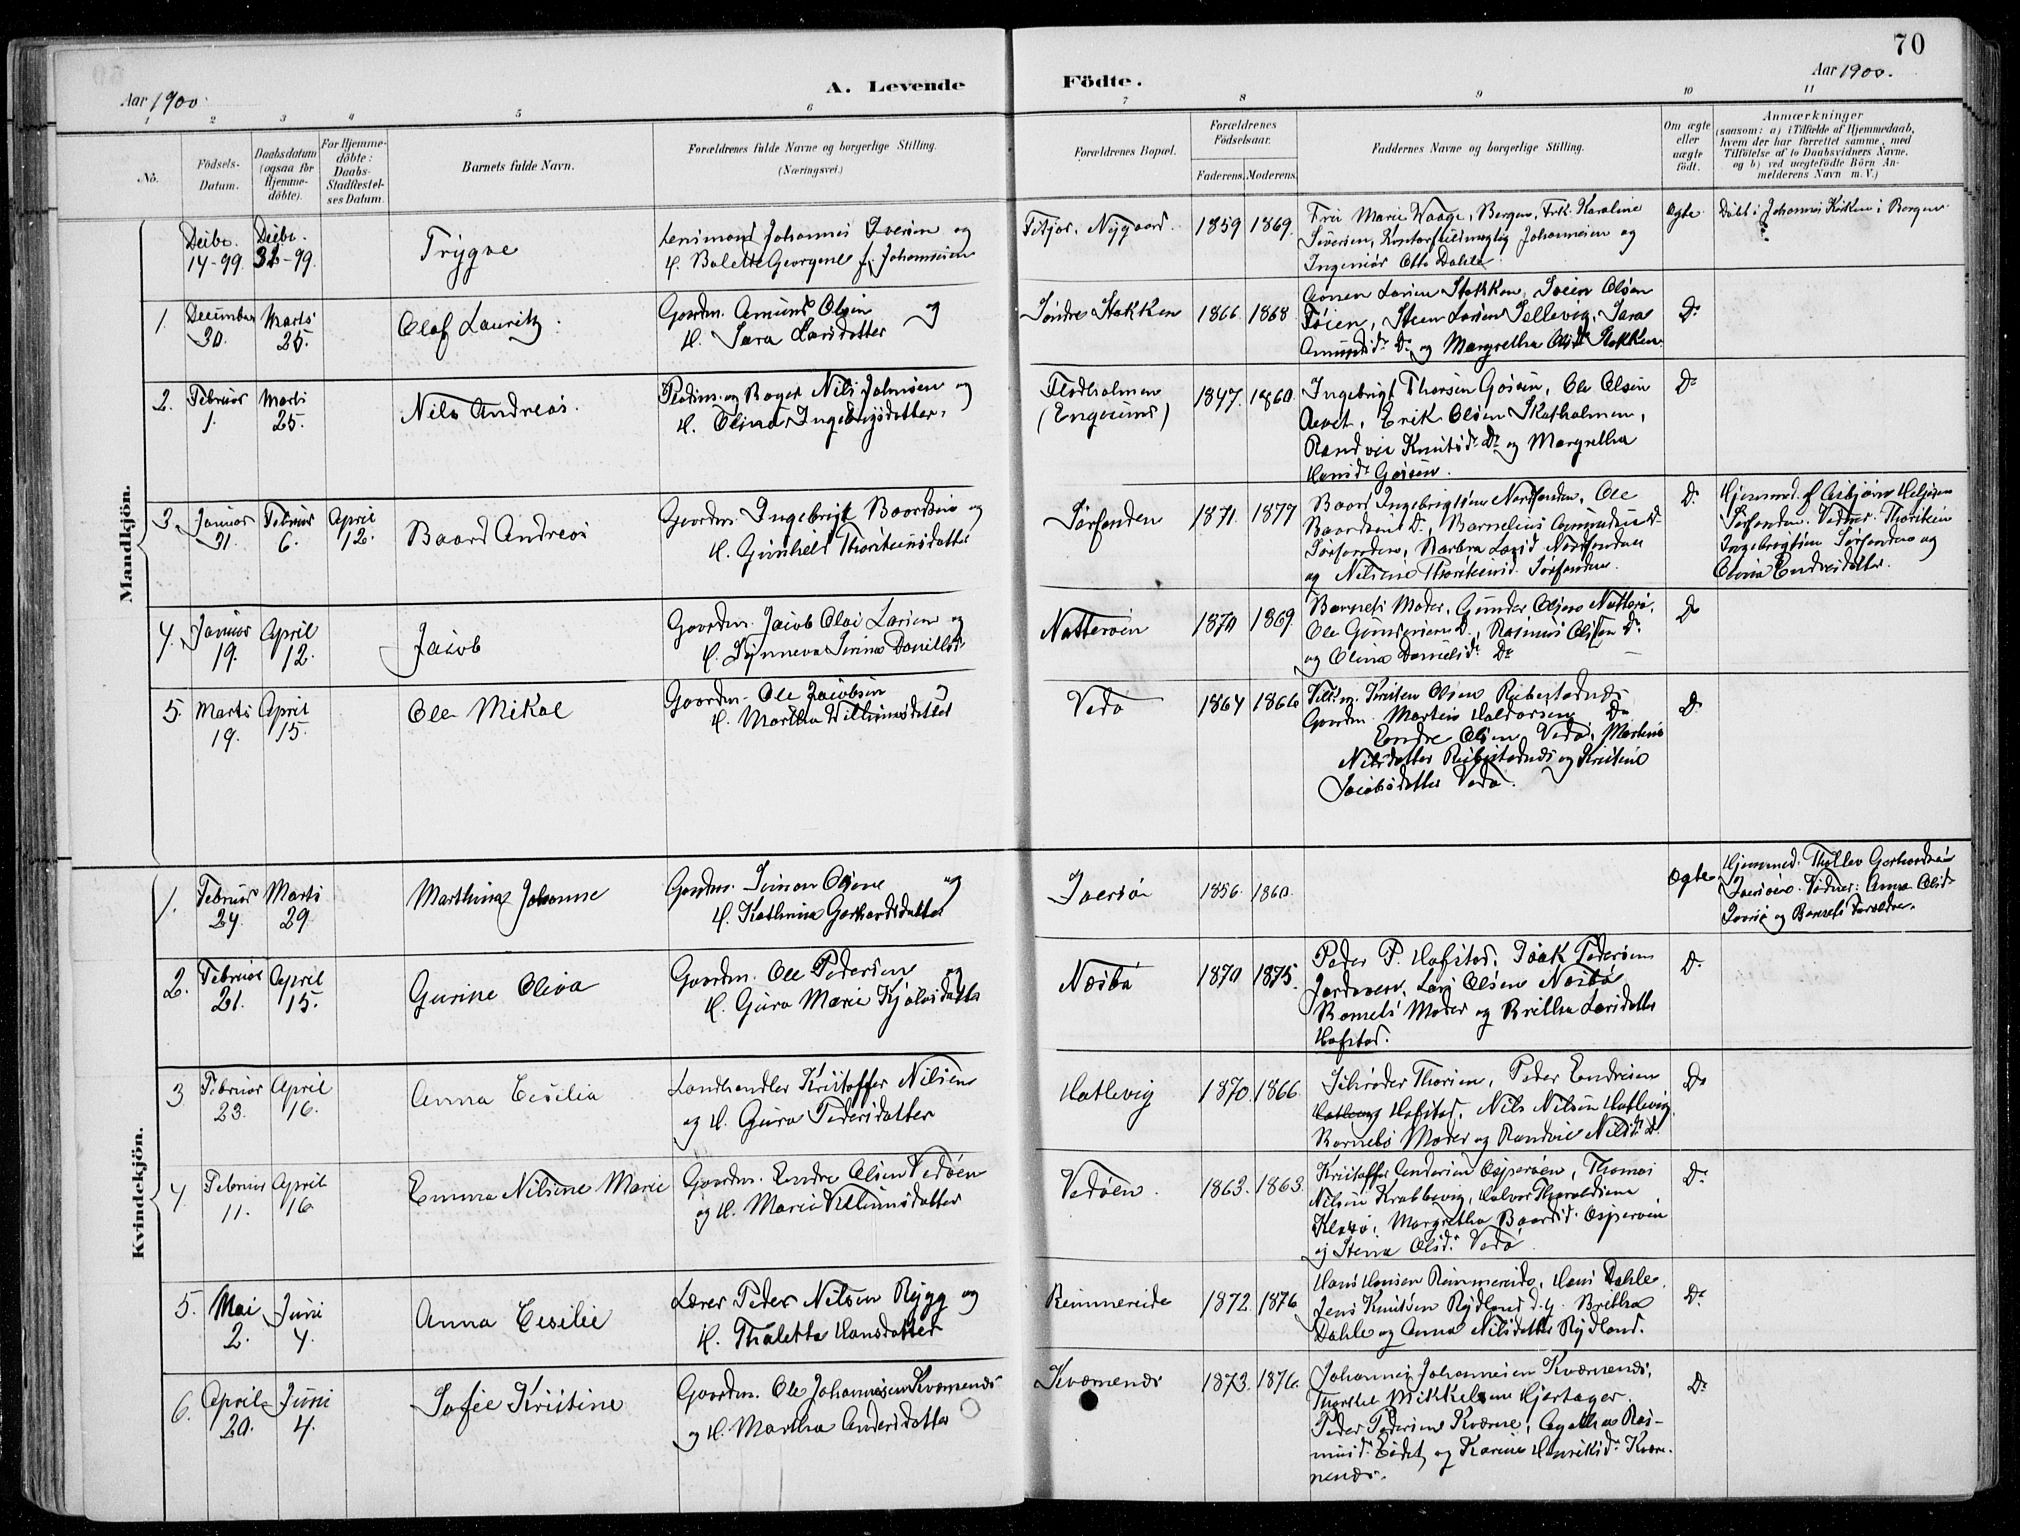 70
Aar 1900.
A. Levende
Födte.
Aar 1900.
1 2 3 4 5 6 7 8 9 10 11
No.
Födsels-Datum.
Daabsdatum (ogsaa for Hjemme-döbte).
For Hjemme-döbte: Daabs-Stadfæstel-ses Datum.
Barnets fulde Navn.
Forældrenes fulde Navne og borgerlige Stilling.
(Næringsvei.)
Forældrenes Bopæl.
Forældrenes Födselsaar.
Faderens. Moderens.
Faddernes Navne og borgerlige Stilling.
Om ægte eller uægte født.
Anmærkninger
(saasom: a) i Tilfælde af Hjemmedaab,
hvem der har forrettet samme, med
Tilföielse af to Daabsvidners Navne.
og b) ved uægtefödte Börn An-
melderens Navn m. V.)
Mandkjön.
Decbr. 14-99.
Decbr. 31-99.
Trygve
Johannes Iversen og
H. Bolette Georgine f. Johannesen
Fitjar, Nygaard.
1859 1869.
Fru Marie Waage, Bergen, Frk. Karoline
Iversen, Kontorfuldmægtig Johannesen og
Ingeniør Otto Dahle
Ægte
Døbt i Johannes Kirken i Bergen
1.
December 30.
Marts 25.
Olaf Lauritz.
Gaardm. Amund Olsen og
H. Sara Larsdatter
Søndre Stokken
1866 1868
Larsen Stokken, Svein Olsen
Steen Larsen Sellevig, Sara
Amundsdr. Do. og Margretha Olsdr. Stokken
Do
2.
Februar 1.
Marts 25.
Nils Andreas.
og Bager Nils Johnsen og
H. Olina Ingebrigtsdatter.
Flatholmen
(Engesund)
1847. 1860.
Ingebrigt Thorsen Gøsen, Ole Olsen
Erik Olsen Skatholmen,
Randvei Knutsdr. Do og Margretha
Hansdr. Gøsen.
Do
3.
Januar 31.
Februar 6.
April 12.
Baard Andreas
Gaardm. Ingebrigt Baardsen og
H. Gunhild Thorsteinsdatter
Sørfonden
1871. 1877
Baard Ingebrigtsen Nordfonden, Ole
Baardsen Do., Barnelius Amundsen Do
Sørfonden, Barbra Larsd. Nordfonden
og Nilsine Thorsteinsd. Sørfonden.
Do
Hjemmed. af Asbjørn Helgesen
Sørfonden. Vidner: Thorstein
Ingebrigtsen Sørfonden og
Olivia Endresdatter.
4.
Januar 19.
April 12.
Jacob
Gaardm. Jacob Olai Larsen og
H. Synneva Serina Danielsdr
Natterøen
1870 1869.
Barnets Moder, Gunder Olsen Natterø,
Ole Gundersen Do., Rasmus Olsen Do.
og Olina Danielsdr. Do
Do
5.
Marts 19.
April 15.
Ole Mikal
Gaardm. Ole Jacobsen og
H. Martha Villumsdatter
Vedø
1864 1866
Kristen Olsen Rubbestadnes
Gaardm. Martin Haldorsen Do
Endre Olsen Vedø, Martine
Nilsdatter Rubbestadnes og Kristine
Jacobsdatter Vedø.
Do
Kvindekjön.
1.
Februar 24.
Marts 29.
Marthina Johanne
Gaardm. Simon Olsen og
H. Kathrine Gerhardsdatter
Iversø
1856. 1860.
Ægte
Hjemmed. Thollev Gerhardsen
Iversøen. Vidner: Anna Olsd.
og Barnets Forældre.
2.
Februar 21.
April 15.
Gurine Oliva
Gaardm. Ole Pedersen og
H. Guro Marie Kjølvsdatter
Næsbø
1870 1875.
Peder P. Hafstad, Isak Pedersen
Lars Olsen Næsbø
Barnets Moder og Britha Larsdatter
Hafstad.
Do
3
Februar 23.
April 16.
Anna Cecilia
Landhandler Kristoffer Nilsen
og H. Guro Pedersdatter
Hatlevig
1870. 1866.
Schrøder Thorsen, Peder Endresen
Hafstad, Nils Nilsen Hatlevig
Barnets Moder og Randvei Nilsdr. Do.
Do
4.
Februar 11.
April 16.
Emma Nilsine Marie
Gaardm. Endre Olsen Vedøen
og H. Maria Villumsdatter
Vedøen.
1863. 1863
Kristoffer Andersen Osperøen, Thomas
Nilsen Krabbevig, Halvor Thoraldsen
Margretha Baardsd. Osperøen
og Stena Olsdr. Vedø
Do
5.
Mai 2.
Juni 4.
Anna Cecilie
Lærer Peder Nilsen Rygg og
H. Thaletta Hansdatter
Remmereide
1872. 1876
Hans Hansen Remmereide, Hans Dahle,
Jens Knutsen Rydland d.y. Britha
Dahle og Anna Nilsdatter Rydland.
Do
6.
April 20.
Juni 4.
Sofie Kristine
Gaardm. Ole Johannesen Kværnenes
og H. Martha Andersdatter
Kværnenes
1873. 1876.
Johannes Johannesen Kværnenes,
Mikkelsen Hjartager
Peder Pedersen Kværne, Agatha Ras-
musd. og Karine Henriksdr. Kvær-
nenes.
Do